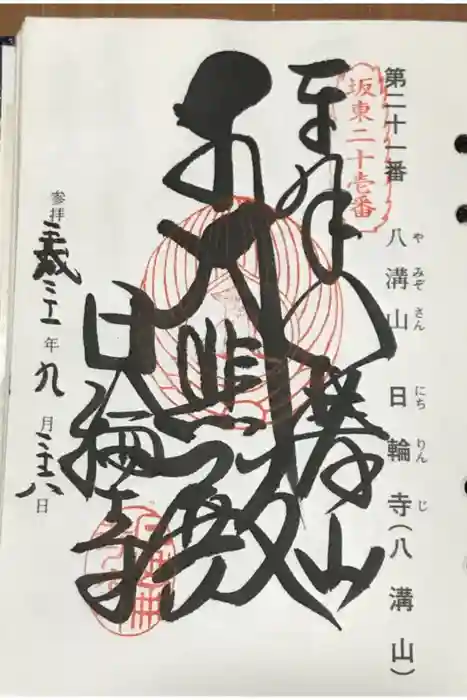 第二十一番 八溝山 日輪寺(八溝山)
や みぞ さん にち りん じ
坂東二十壱番
奉拝 八溝山
大悲殿
日輪寺
参拝 年九月二十八日